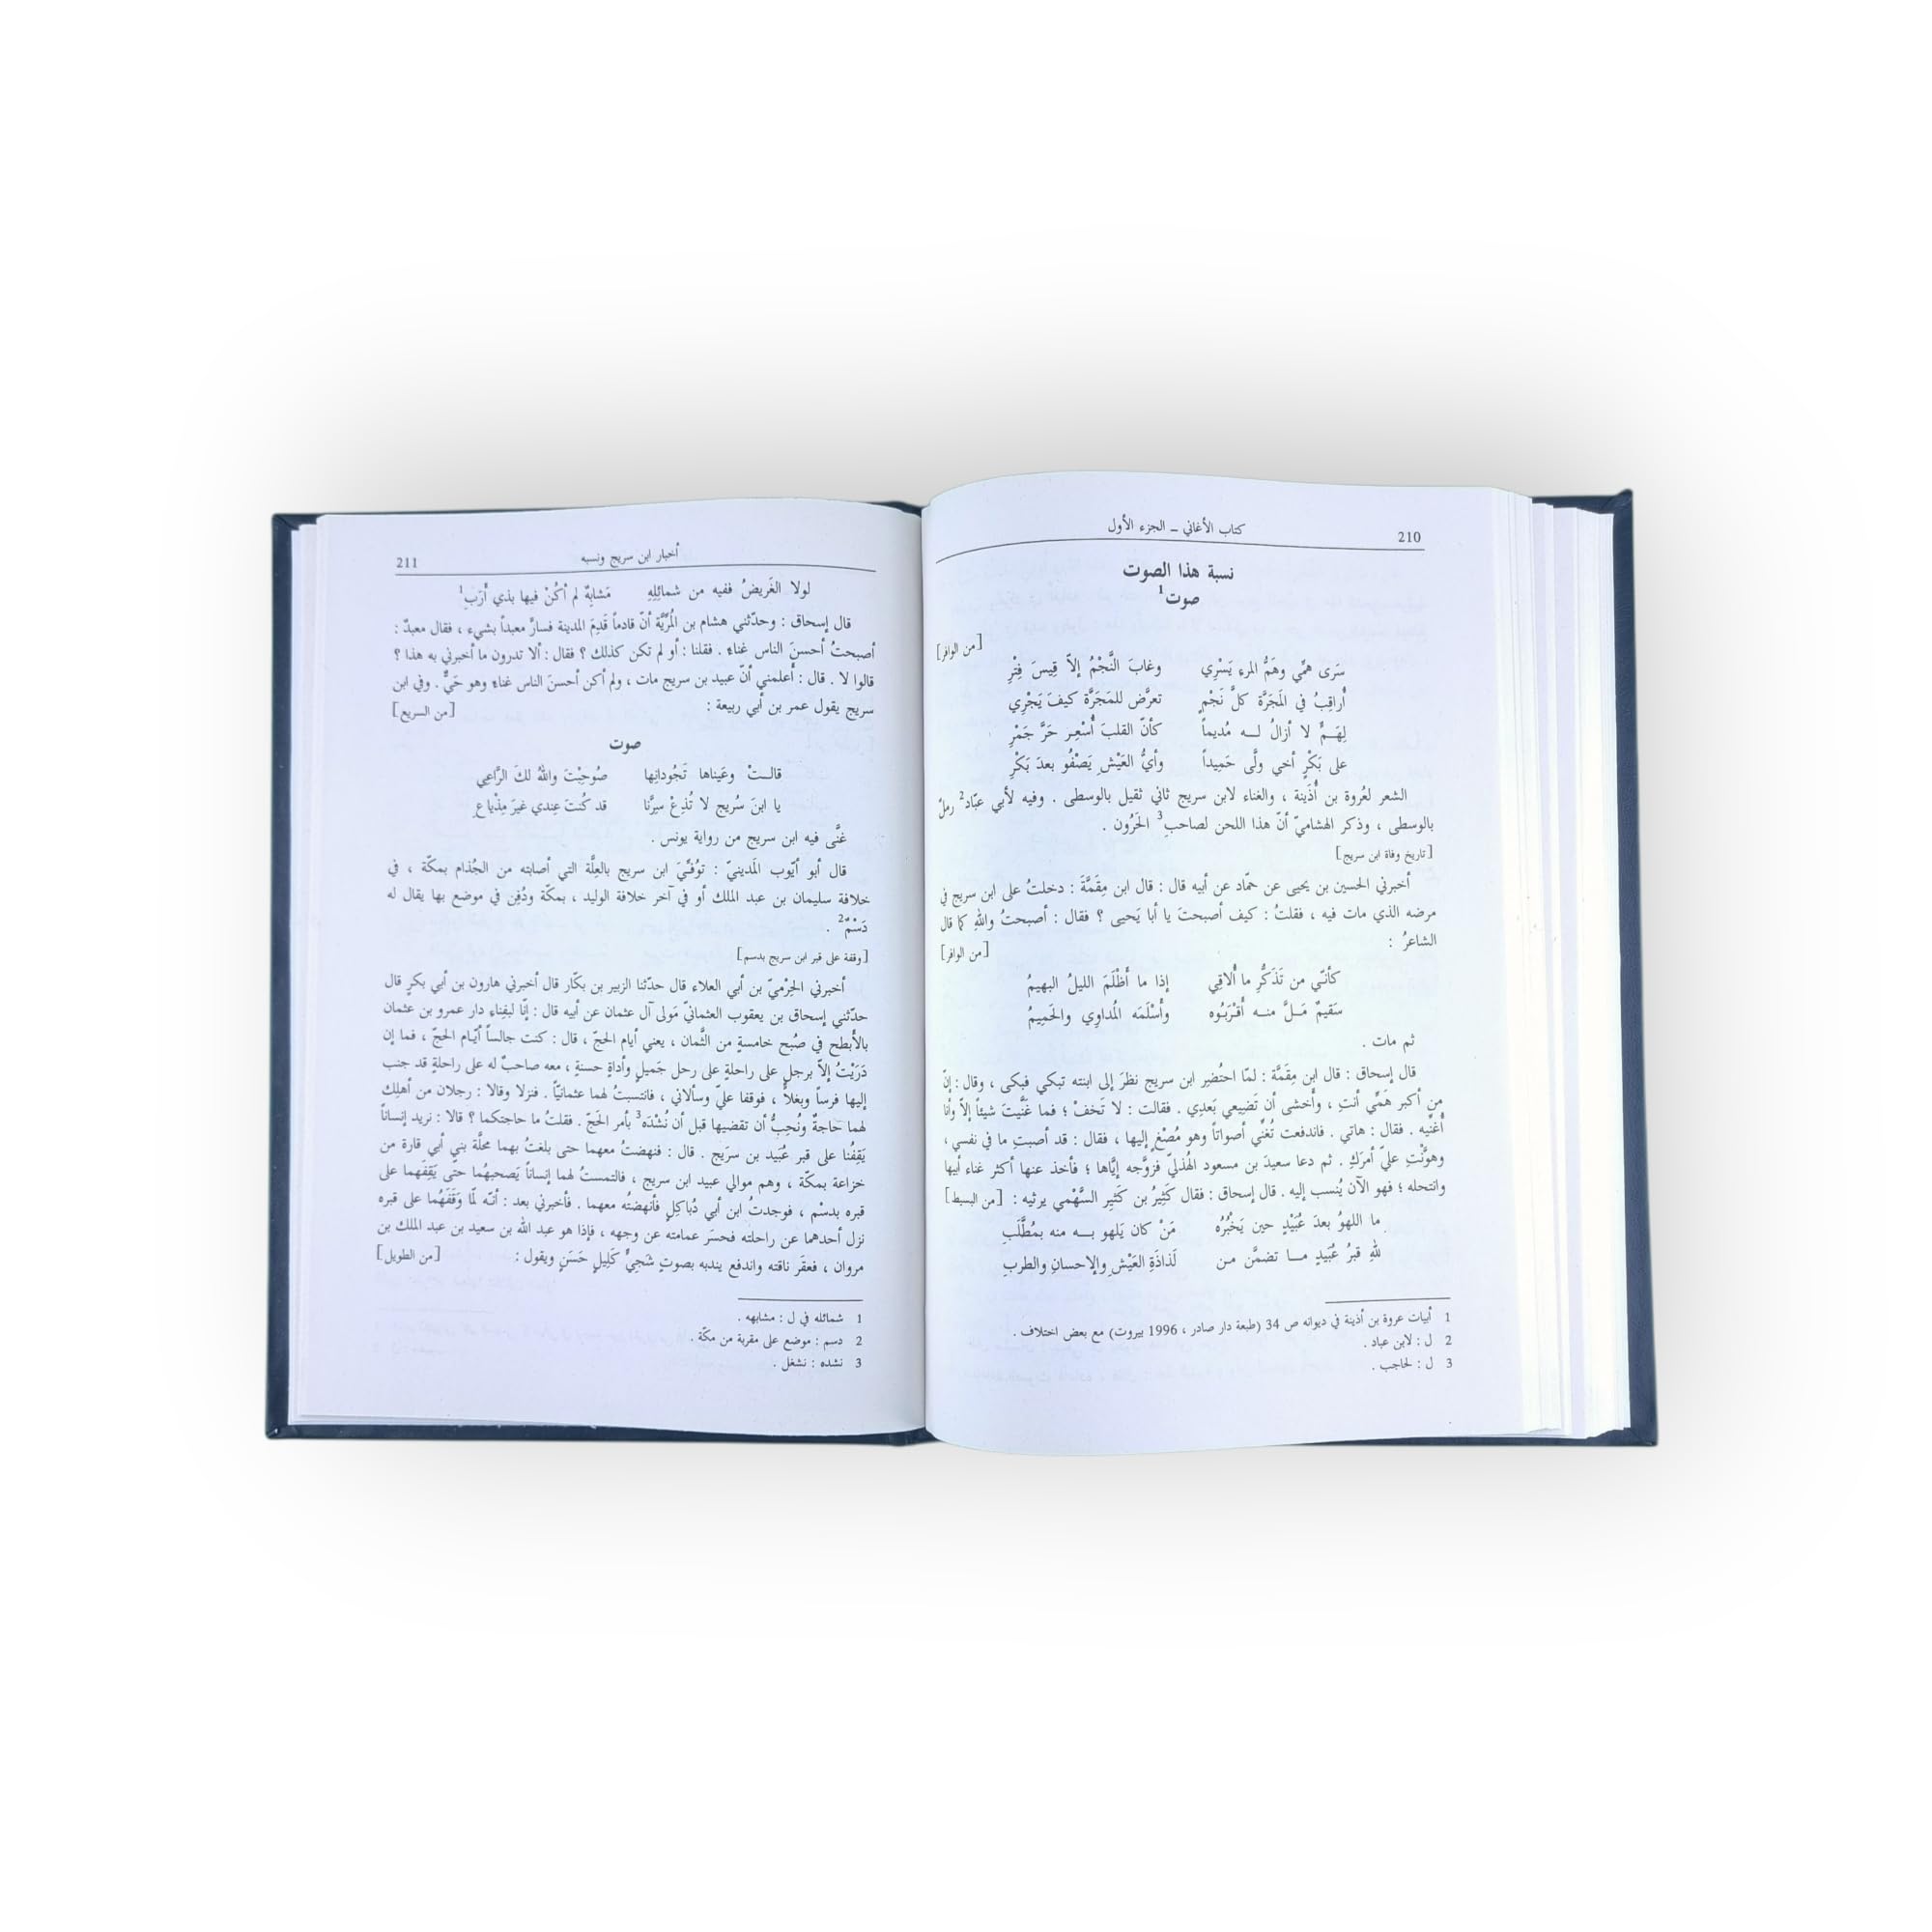 210
كتاب الأغاني ــ الجزء الأول
نسبة هذا الصوت
صوت1
[من الوافر]
سَرَى هَمِّي وهَمُّ المرءِ يَسْرِي وغابَ النَّجْمُ إلاّ قِيسَ فِتْرِ
أُراقِبُ في المَجَرَّة كلَّ نَجْمٍ تعرَّض للمَجَرَّة كيفَ يَجْرِي
لِهَمٍّ لا أزالُ لـه مُديماً كأنّ القلبَ أُسْعِر حَرَّ جَمْرِ
على بَكْرٍ أخي ولَّى حَمِيداً وأيُّ العَيْشِ يَصْفُو بعدَ بَكْرِ
الشعر لعُروة بن أُذَينة ، والغناء لابن سريج ثاني ثقيل بالوسطى . وفيه لأبي عبّاد2 رملٌ
بالوسطى ، وذكر الهشاميّ أنّ هذا اللحن لصاحبِ3 الحَرُون .
[تاريخ وفاة ابن سريج]
أخبرني الحسين بن يحيى عن حمّاد عن أبيه قال : قال ابن مِقَمَّةَ : دخلتُ على ابن سريج في
مرضه الذي مات فيه ، فقلتُ : كيف أصبحتَ يا أبا يَحيى ؟ فقال : أصبحتُ واللهِ كما قال
الشاعرُ : [من الوافر]
كأنّي من تَذَكُّرِ ما أُلاقِي إذا ما أَظْلَمَ الليلُ البهيمُ
سَقيمٌ مَـلَّ منـه أَقْرَبُـوه وأَسْلَمَه المُداوِي والحَمِيمُ
ثم مات .
قال إسحاق : قال ابن مِقَمَّة : لمّا احتُضِر ابن سريج نظرَ إلى ابنته تبكي فبكى ، وقال : إنّ
من أكبر هَمِّي أنتِ ، وأخشى أن تَضيعي بَعدِي . فقالت : لا تَخَفْ ؛ فما غَنَّيتَ شيئاً إلاّ وأنا
أُغنِّيه . فقال : هاتي . فاندفعت تُغنِّي أصواتاً وهو مُصْغٍ إليها ، فقال : قد أصبتِ ما في نفسي ،
وهوَّنْتِ عليّ أمرَكِ . ثم دعا سعيدَ بن مسعود الهُذليّ فزوَّجه إيَّاها ؛ فأخذ عنها أكثر غناء أبيها
وانتحله ؛ فهو الآن يُنسب إليه . قال إسحاق : فقال كَثِيرُ بن كَثِيرِ السَّهْمي يرثيه : [من البسيط]
ما اللهوُ بعدَ عُبَيْدٍ حين يَخْبُرُه مَنْ كان يَلهو بـه منه بمُطَّلَبِ
للهِ قبرُ عُبَيدٍ مـا تضمَّن من لَذاذَةِ العَيْشِ والإحسانِ والطربِ
1 أبيات عروة بن أذينة في ديوانه ص 34 (طبعة دار صادر ، 1996 بيروت) مع بعض اختلاف .
2 ل : لابن عباد .
3 ل : لحاجب .
أخبار ابن سريج ونسبه
211
لولا الغَريضُ ففيه من شمائِلِهِ مَشابِهٌ لم أكُنْ فيها بذي أَرَبِ1
قال إسحاق : وحدّثني هشام بن المُرِّيَّة أنّ قادماً قَدِمَ المدينة فسارَّ معبداً بشيء ، فقال معبدٌ :
أصبحتُ أحسنَ الناس غناءً . فقلنا : أو لم تكن كذلك ؟ فقال : ألا تدرون ما أخبرني به هذا ؟
قالوا لا . قال : أعلمني أنّ عبيد بن سريج مات ، ولم أكن أحسنَ الناس غناءً وهو حَيٌّ . وفي ابن
سريج يقول عمر بن أبي ربيعة : [من السريع]
صوت
قالـتْ وعَيناها تَجُودانِها صُوحِبْتَ واللهُ لكَ الرَّاعِي
يا ابنَ سُريج لا تُذِعْ سِرَّنا قد كُنتَ عِندي غيرَ مِذْياعِ
غنَّى فيه ابن سريج من رواية يونس .
قال أبو أيّوب المَدينيّ : تُوُفِّيَ ابن سريج بالعِلَّة التي أصابته من الجُذام بمكّة ، في
خلافة سليمان بن عبد الملك أو في آخر خلافة الوليد ، بمكّة ودُفِن في موضع بها يقال له
دَسْمٌ2 .
[وقفة على قبر ابن سريج بدسم]
أخبرني الحِرْميّ بن أبي العلاء قال حدّثنا الزبير بن بكّار قال أخبرني هارون بن أبي بكرٍ قال
حدّثني إسحاق بن يعقوب العثمانيّ مَولى آل عثمان عن أبيه قال : إنّا لبفِناء دار عمرو بن عثمان
بالأبطح في صُبح خامسةٍ من الثَّمان ، يعني أيام الحجّ ، قال : كنت جالساً أيّام الحجّ ، فما إن
دَرَيْتُ إلاّ برجلٍ على راحلةٍ على رحل جَميلٍ وأداةٍ حسنةٍ ، معه صاحبٌ له على راحلةٍ قد جنب
إليها فرساً وبغلاً ، فوقفا عليّ وسألاني ، فانتسبتُ لهما عثمانيّاً . فنزلا وقالا : رجلان من أهلِك
لهما حاجةٌ ونُحِبُّ أن تقضيها قبل أن نُشْدَه3 بأمر الحَجّ . فقلتُ ما حاجتكما ؟ قالا : نريد إنساناً
يَقِفُنا على قبر عُبَيد بن سرَيج . قال : فنهضتُ معهما حتى بلغتُ بهما محلَّة بني أبي قارة من
خزاعة بمكّة ، وهم موالي عبيد ابن سريج ، فالتمستُ لهما إنساناً يَصحبهُما حتّى يَقِفَهما على
قبره بدسْم ، فوجدتُ ابن أبي دُباكِلٍ فأنهضتُه معهما . فأخبرني بعد : أنّه لمّا وَقَفَهُما على قبره
نزل أحدهما عن راحلته فحسَر عمامته عن وجهه ، فإذا هو عبد الله بن سعيد بن عبد الملك بن
مروان ، فعقَر ناقته واندفع يندبه بصوتٍ شَجِيٍّ كَلِيلٍ حَسَنٍ ويقول : [من الطويل]
1 شمائله في ل : مشابهه .
2 دسم : موضع على مقربة من مكّة .
3 نشده : نشغل .